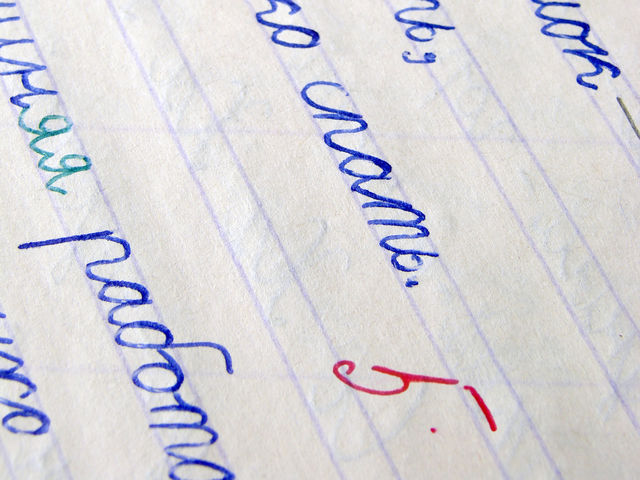 ть,
ко спать.
5.
шняя работа
ко